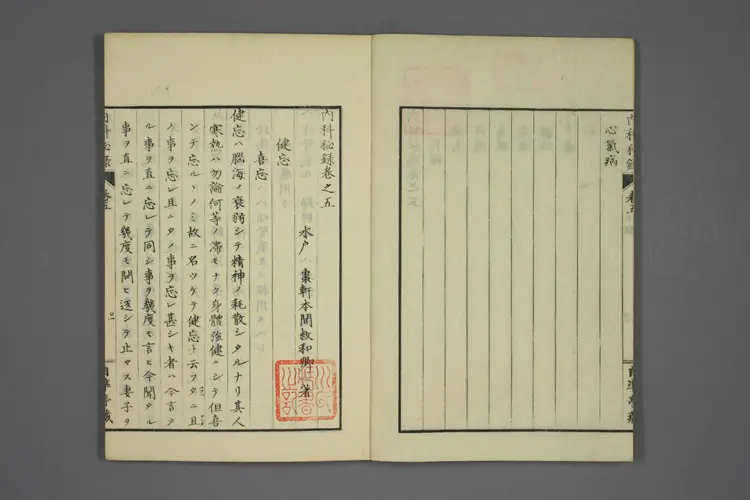 心氣病
內科秘錄卷之五
水戶 棗軒本間救和卿 著
健忘
喜忘
健忘ハ腦海ノ衰弱シテ精神ノ耗散シタルナリ其人
寒熱ハ勿論何等ノ滯モナク身體強健ニシテ但喜
ンデ忘ルヽノミ故ニ名ツケテ健忘ト云フタニ且
ノ事ヲ忘レ且ニタノ事ヲ忘レ甚シキ者ハ今言タ
ル事ヲ直ニ忘レテ同シ事ヲ幾度モ言ヒ今聞タル
事ヲ直ニ忘レテ幾度モ問ヒ返シテ止マス妻子ヲ
內科秘錄
卷五